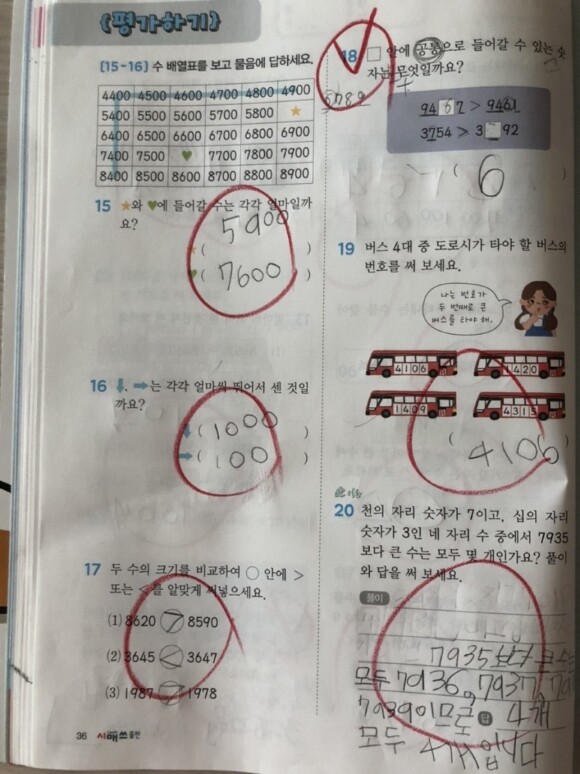 (평가하기)
[15-16] 수 배열표를 보고 물음에 답하세요.
4400 4500 4600 4700 4800 4900
5400 5500 5600 5700 5800 ★
6400 6500 6600 6700 6800 6900
7400 7500 ♥ 7700 7800 7900
8400 8500 8600 8700 8800 8900
15 ★와 ♥에 들어갈 수는 각각 얼마일까
요?
★( 5900 )
♥( 7600 )
16 ⬇, ➡는 각각 얼마씩 뛰어서 센 것일
까요?
⬇( 1000 )
➡( 100 )
17 두 수의 크기를 비교하여 ○ 안에 >
또는 <를 알맞게 써넣으세요.
(1) 8620 > 8590
(2) 3645 < 3647
(3) 1987 > 1978
36 시매쓰출판
18 □ 안에 공통으로 들어갈 수 있는 숫
자는 무엇일까요?
6789
94 6 2 > 9461
3754 > 3 92
( 6 )
19 버스 4대 중 도로시가 타야 할 버스의
번호를 써 보세요.
나는 번호가
두 번째로 큰
버스를 타야 해.
4106 1420
1409 4313
( 4106 )
20 천의 자리 숫자가 7이고, 십의 자리
숫자가 3인 네 자리 수 중에서 7935
보다 큰 수는 모두 몇 개인가요? 풀이
와 답을 써 보세요.
풀이
7935보다 큰 수는
모두 7936, 7937, 79
7939이므로 답 4개
모두 4개입니다